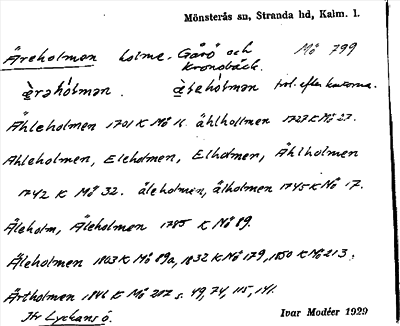 Mönsterås sn, Stranda hd, Kalm. l.
Äreholmen holme. Gårö och Mö 799
Kronobäck.
ä̀rəhólmən. ä̀ləhólmən trol. efter kartorna.
Åhleholmen 1701 K Mö 16. åhlhollmen 1727 K Mö 27.
Ahleholmen, Eleholmen, Elholmen, Åhlholmen
1742 K Mö 32. åleholmen, ålholmen 1745 K Mö 17.
Åleholm, Åleholmen 1785 K Mö 89.
Åleholmen 1803 K Mö 89a, 1832 K Mö 179, 1850 K Mö 213,
Ärtholmen 1846 K Mö 202 s. 49, 74, 115, 141.
Jfr Lyckansö. Ivar Modéer 1929